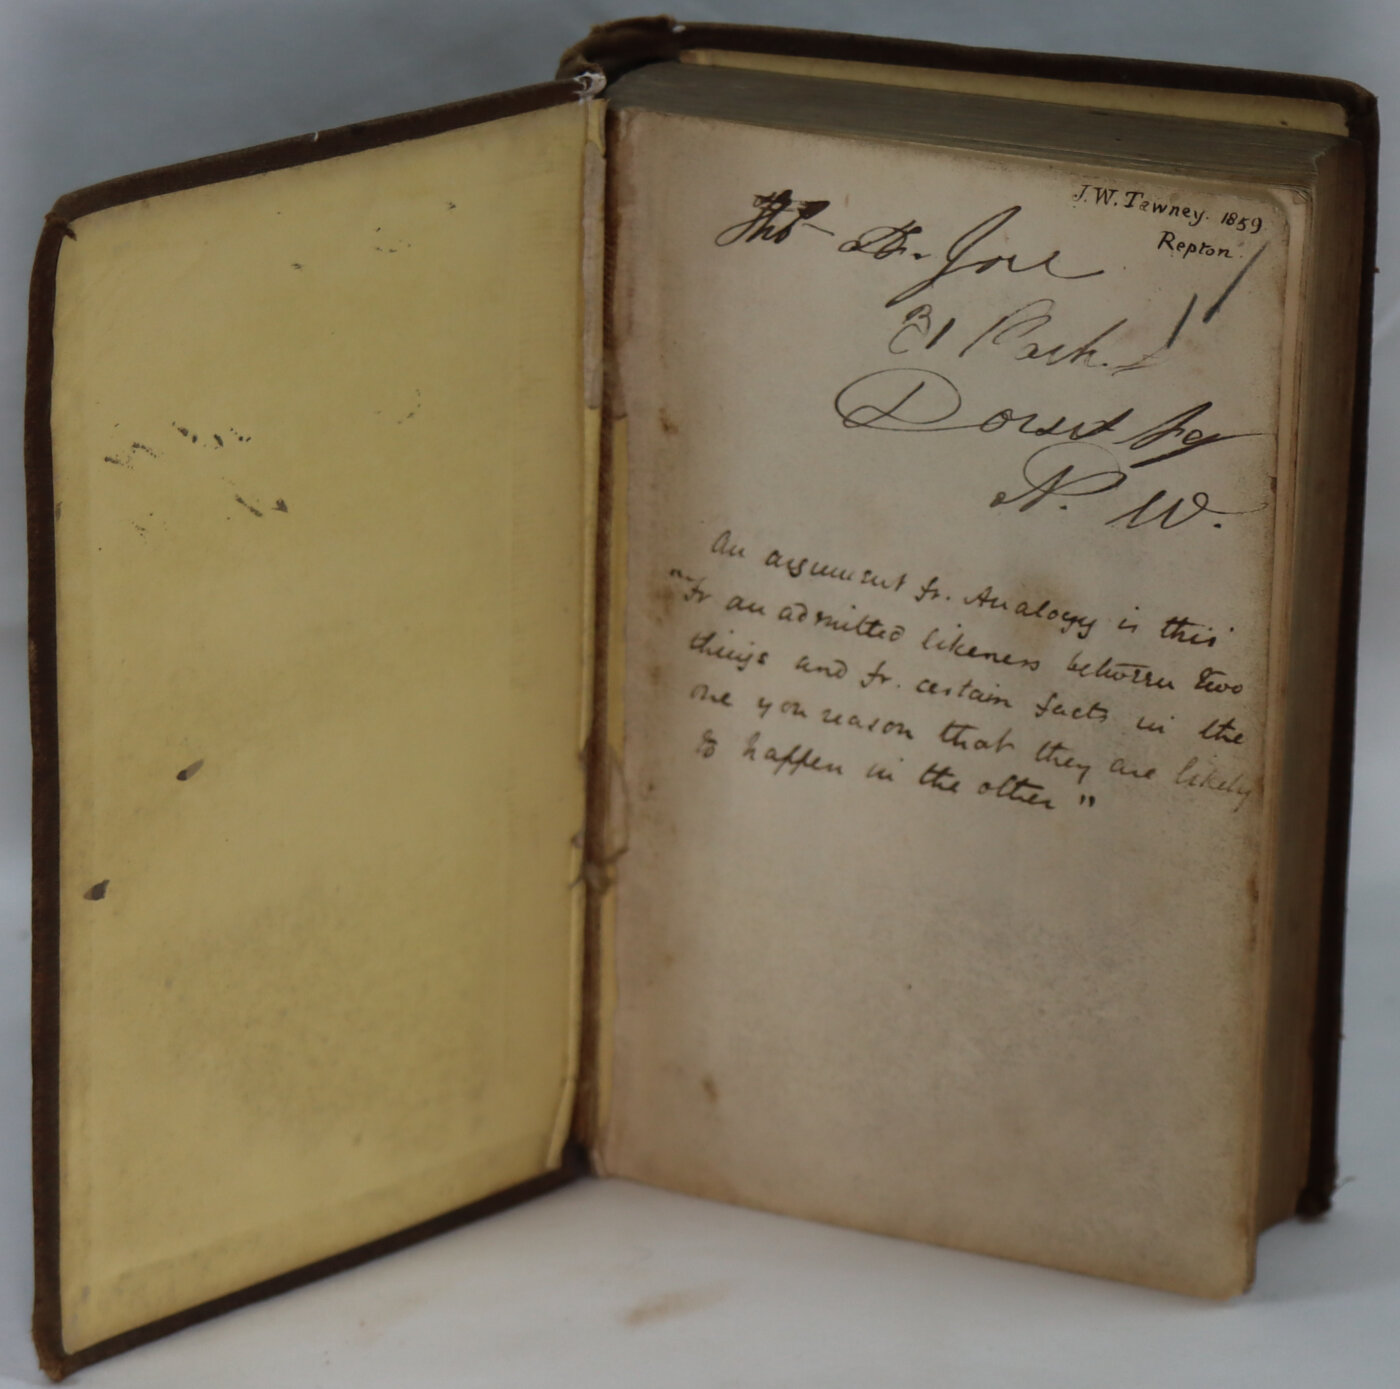 J. W. Tawney. 1859
Repton.
Thos. D.
31 Park.
Dorset Sq
N. W.
An argument fr. Analogy is this
"Fr an admitted likeness between two
things and fr. certain facts in the
one you reason that they are likely
to happen in the other"